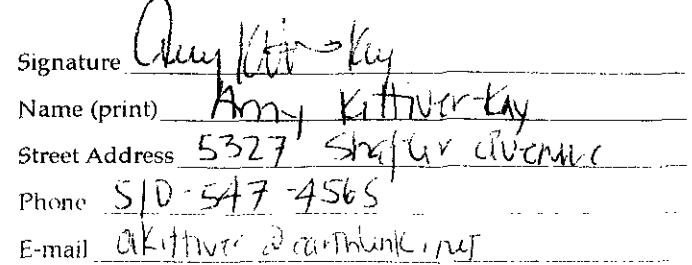 Signature Amy Kittiver-Kay
Name (print) Amy Kittiver-Kay
Street Address 5327 Shafter Avenue
Phone 510-547-4565
E-mail akittiver@earthlink.net